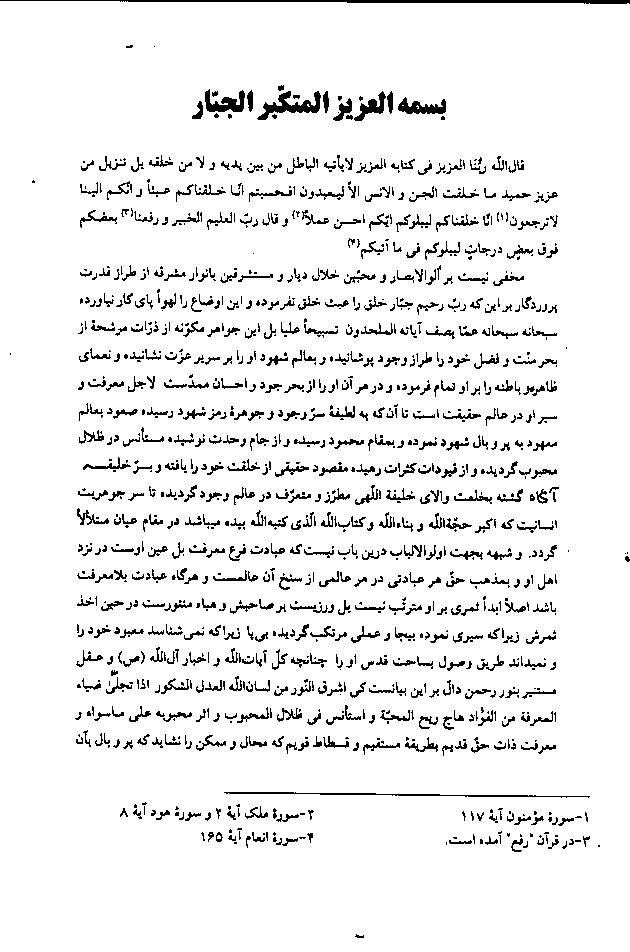 بسمه العزیز المتکبّر الجبّار
قال‌اللّه ربُّنا العزیز فی کتابه العزیز لایأتیه الباطل من بین یدیه و لا من خلفه بل تنزیل من
عزیز حمید ما خلقت الجن و الانس الاّ لیعبدون افحسبتم انّا خلقناکم عبثاً و انّکم الینا
لاترجعون(۱) انّا خلقناکم لیبلوکم ایّکم احسن عملاً(۲) و قال ربّ العلیم الخبیر و رفعنا(۳) بعضکم
فوق بعض درجاتٍ لیبلوکم فی ما آتیکم(۴)
مخفی نیست بر اُلوالابصار و محبّین خلال دیار و مستشرقین بانوار مشرقه از طراز قدرت
پروردگار بر این که ربّ رحیم جبّار خلق را عبث خلق نفرموده و این اوضاع را لهواً پای کار نیاورده
سبحانه سبحانه عمّا یصف آیاته الملحدون تسبیحاً علیا بل این جواهر مکوّنه از ذرّات مرشحة از
بحر منّت و فضل خود را طراز وجود پوشانیده و بعالم شهود او را بر سریر عزّت نشانیده و نعمای
ظاهره‌و باطنه را بر او تمام فرموده و در هر آن او را از بحر جود و احسان ممدّست لاجل معرفت و
سیر او در عالم حقیقت است تا آن که به لطیفهٔ سرّ وجود و جوهرهٔ رمز شهود رسیده صعود بعالم
معهود به پر و بال شهود نموده و بمقام محمود رسیده و از جام وحدت نوشیده مستأنس در ظلال
محبوب گردیده و از قیودات کثرات رهیده مقصود حقیقی از خلقت خود را یافته و بسرّ خلیقـه
آگاه گشته بخلعت والای خلیفة اللهی مطرّز و متعزّف در عالم وجود گردیده تا سر جوهریت
انسانیت که اکبر حجّةاللّه و بناءاللّه و کتاب‌اللّه الّذی کتبه‌اللّه بیده میباشد در مقام عیان متلألأ
گردد. و شبهه بجهت اولوالالباب درین باب نیست که عبادت فرع معرفت بل عین اوست در نزد
اهل او و بمذهب حقّ هر عبادتی در هر عالمی از سنخ آن عالمست و هرگاه عبادت بلامعرفت
باشد اصلاً ابداً ثمری بر او مترتّب نیست بل ورزیست بر صاحبش و هباء منثورست در حین اخذ
ثمرش زیرا که سیری نموده بیجا و عملی مرتکب گردیده بی‌پا زیرا که نمی‌شناسد معبود خود را
و نمیداند طریق وصول بساحت قدس او را چنانچه کلّ آیات‌اللّه و اخبار آل‌اللّه (ص) و عقل
مستنیر بنور رحمن دالّ بر این بیانست کی اشرق النّور من لسان‌اللّه العدل الشکور اذا تجلّیٰ ضیاء
المعرفة من الفؤاد هاج ریح المحبّة و استأنس فی ظلال المحبوب و اثر محبوبه علی ماسواه و
معرفت ذات حقّ قدیم بطریقهٔ مستقیم و قسطاط قویم که محال و ممکن را نشاید که پر و بال بآن
۱-سورهٔ مؤمنون آیهٔ ۱۱۷
۲-سورهٔ ملک آیهٔ ۲ و سورهٔ هود آیهٔ ۸
۳-در قرآن "رفع" آمده است.
۴-سورهٔ انعام آیهٔ ۱۶۵